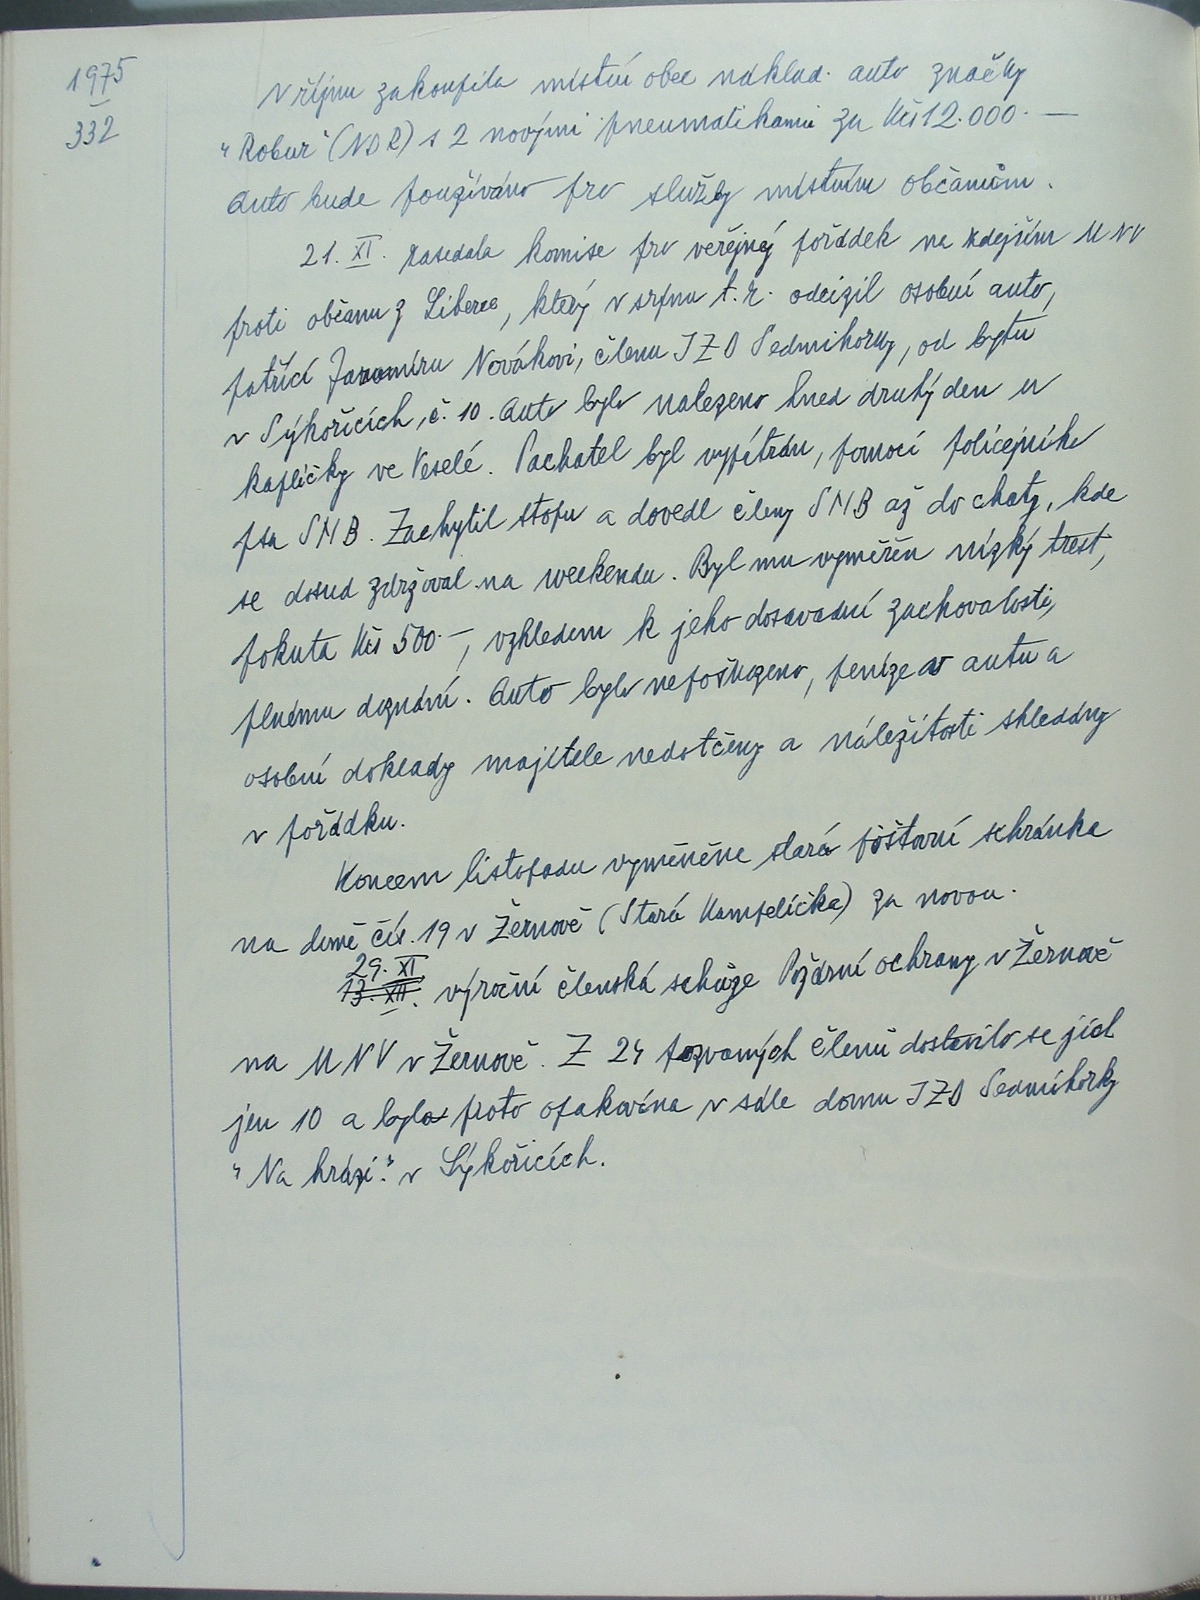 1975
332
V říjnu zakoupila místní obec náklad. auto značky
"Robur" (NDR) s 2 novými pneumatikami za Kčs 12.000.—
Auto bude používáno pro služby místním občanům.
21. XI. zasedala komise pro veřejný pořádek na zdejším MNV
proti občanu z Liberce, který v srpnu t.r. odcizil osobní auto,
patřící Jaromíru Novákovi, členu JZD Sedmihorky, od bytu
v Sýkořicích, č. 10. Auto bylo nalezeno hned druhý den u
kapličky ve Veselé. Pachatel byl vypátrán, pomocí policejního
psa SNB. Zachytil stopu a dovedl členy SNB až do chaty, kde
se dosud zdržoval na weekendu. Byl mu vyměřen nízký trest,
pokuta Kčs 500.—, vzhledem k jeho dosavadní zachovalosti,
plnému doznání. Auto bylo nepoškozeno, peníze v autu a
osobní doklady majitele nedotčeny a náležitosti shledány
v pořádku.
Koncem listopadu vyměněne stará poštovní schránka
na domě čís. 19 v Žernově (Stará Kampelička) za novou.
29. XI.
13. XII. výroční členská schůze Požární ochrany v Žernově
na MNV v Žernově. Z 24 pozvaných členů dostavilo se jich
jen 10 a byla proto opakována v sále domu JZD Sedmihorky
"Na hrázi" v Sýkořicích.